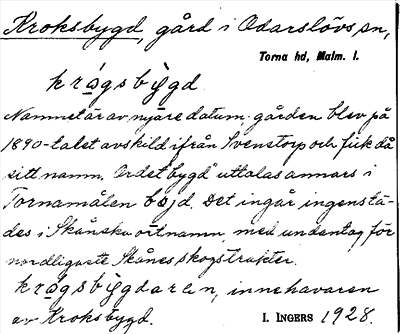 Kroksbygd, gård i Odarslövs sn,
Torna hd, Malm. l.
krǫ́gsbỳgd
Namnet är av nyare datum; gården blev på
1890-talet avskild ifrån Svenstorp och fick då
sitt namn. Ordet "bygd" uttalas annars i
Tornamålen böjd. Det ingår ingenstä-
des i Skånska ortnamn, med undantag för
nordligaste Skånes skogstrakter.
krǫ́gsbỳgdaren, innehavaren
av Kroksbygd.
I. INGERS 1928.